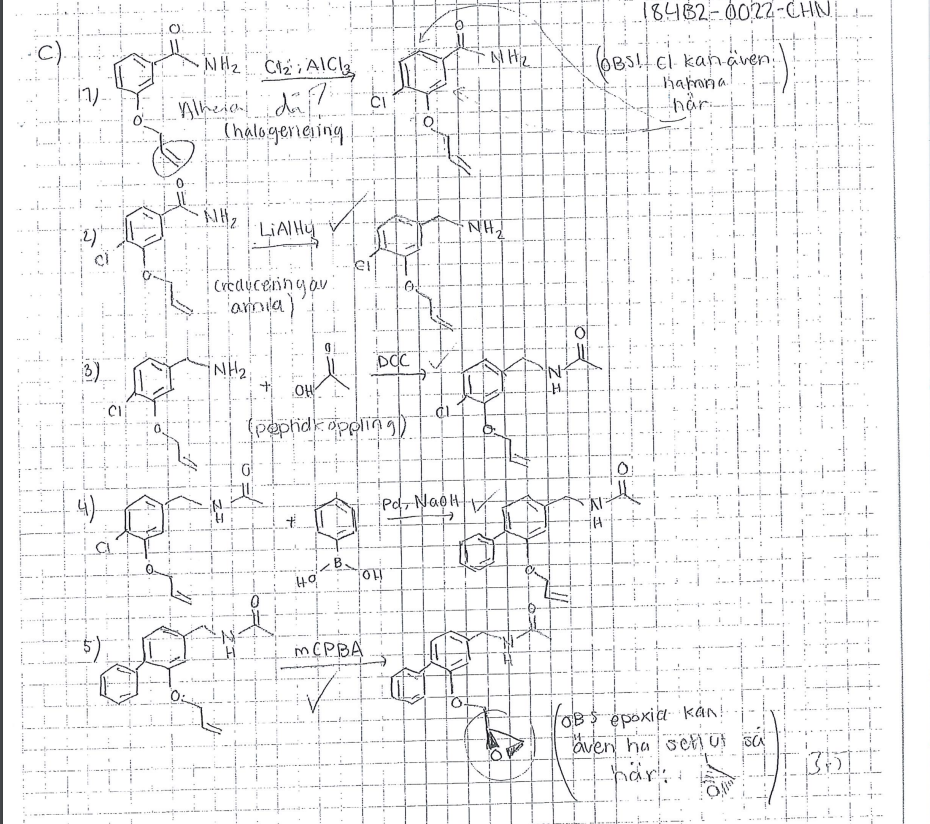 184B2-0022-CHN
C)
1)
O
NH2
O
Cl2, AlCl3
Alkena då?
(halogenering
O
NH2
Cl
O
(OBS! Cl kan även
hamna
här)
2)
O
NH2
Cl
O
LiAlH4
(reducering av
amid)
NH2
Cl
O
3)
NH2
Cl
O
+
O
OH
DCC
(peptidkoppling)
O
N
H
Cl
O
4)
O
N
H
Cl
O
+
B
HO
OH
Pd, NaOH
O
N
H
O
5)
O
N
H
O
mCPBA
O
N
H
O
O
(OBS epoxid kan
även ha sett ut så
här:
O)
3,5